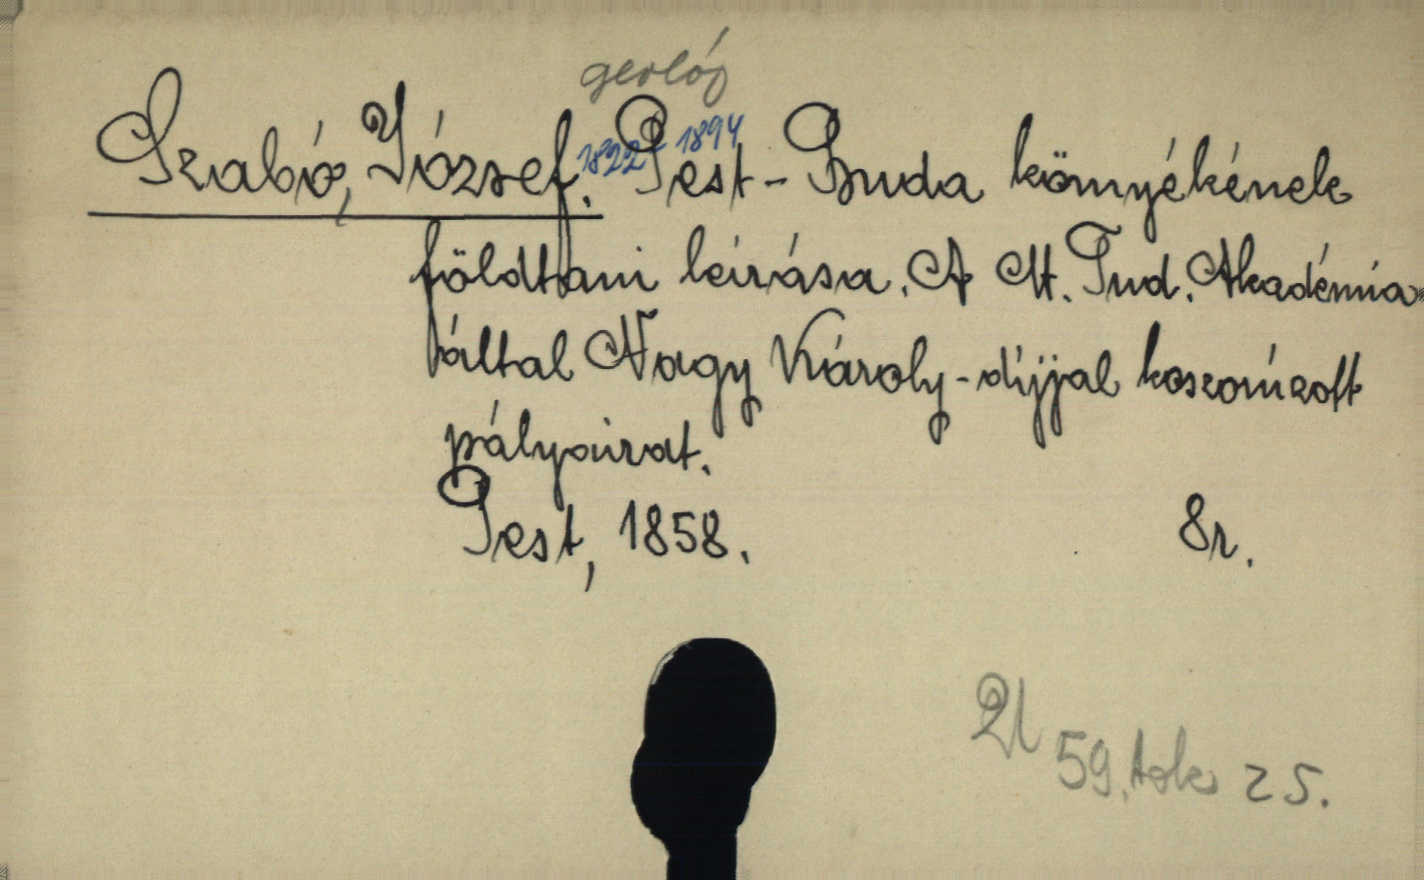 geológ
Szabó, József. 1822-1894 Pest-Buda környékének
földtani leirása. A M. Tud. Akadémia
által Nagy Károly-díjjal koszorúzott
pályairat.
Pest, 1858. 8r.
59. tok 25.